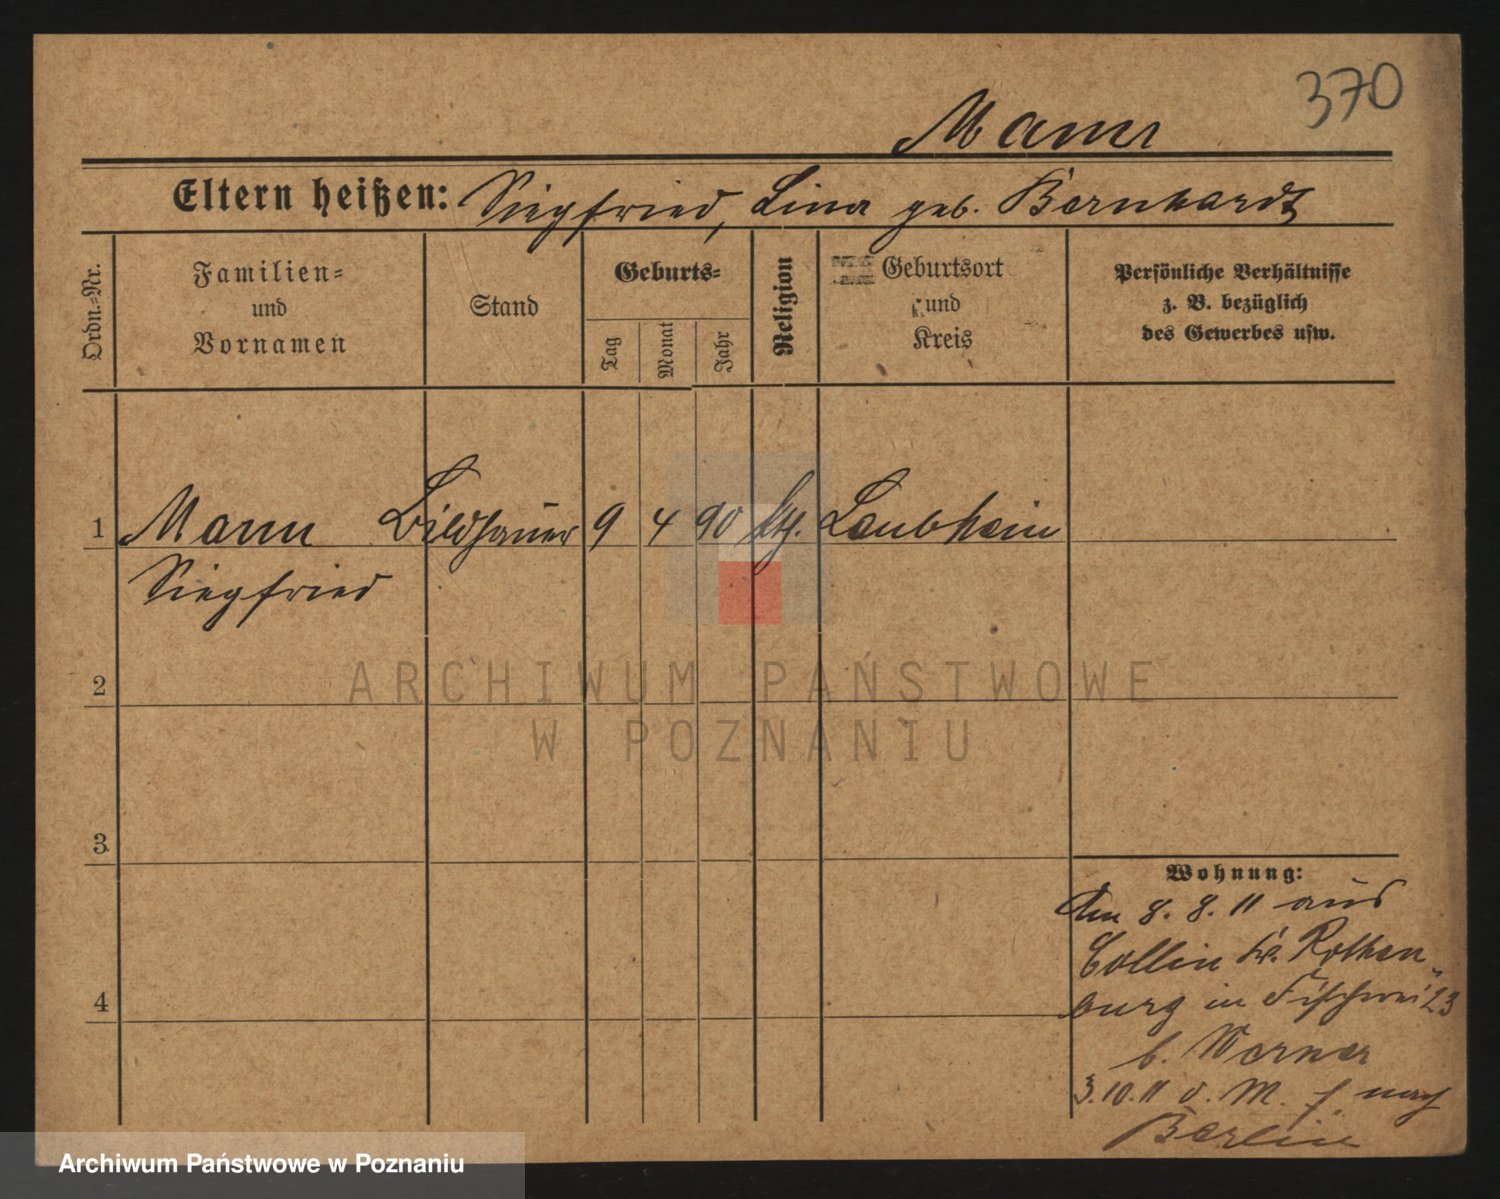 370
Mann
Eltern heißen: Siegfried, Lina geb. Bernhardt
Ordn.-Nr.
Familien-
und
Vornamen
Stand
Geburts-
Tag
Monat
Jahr
Religion
Geburtsort
und
Kreis
Persönliche Verhältnisse
z. B. bezüglich
des Gewerbes usw.
1 Mann Bildhauer 9 4 90 Laubhain
Siegfried
ARCHIWUM PAŃSTWOWE
W POZNANIU
2
3
4
Wohnung:
Am 8. 8. 11 aus
Collin Kr. Rothen-
burg in Fischerei 23
b. Werner
3. 10. 11 o. M. f. nach
Berlin
Archiwum Państwowe w Poznaniu